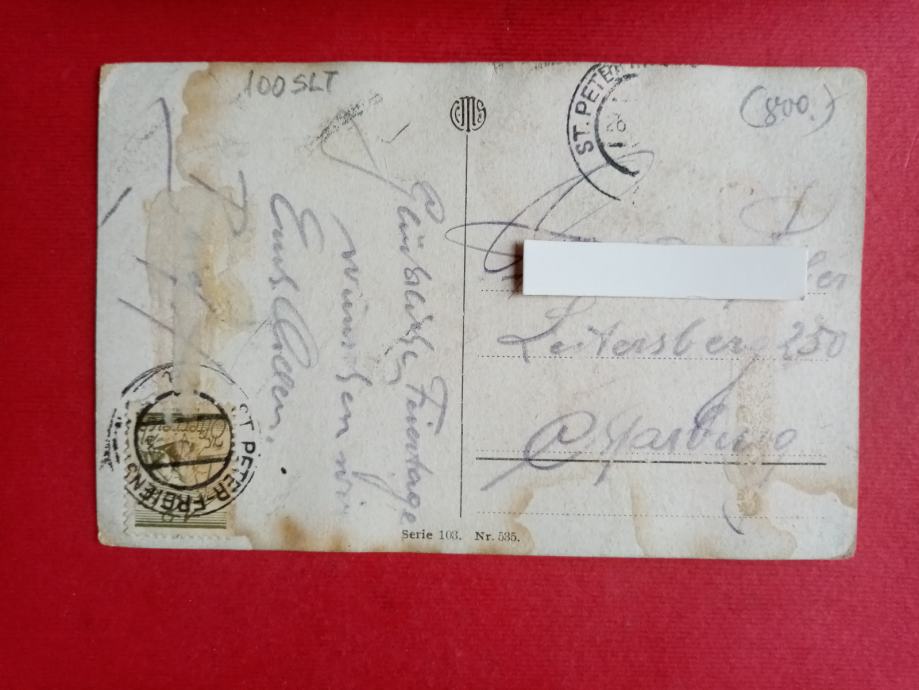 100 SLT
(800.)
ST. PETER
26
Glückliche Feiertage
wünschen wir
Euch Allen.
Leitersberg 250
Marburg
ST. PETER-FREIENS
Serie 103. Nr. 535.